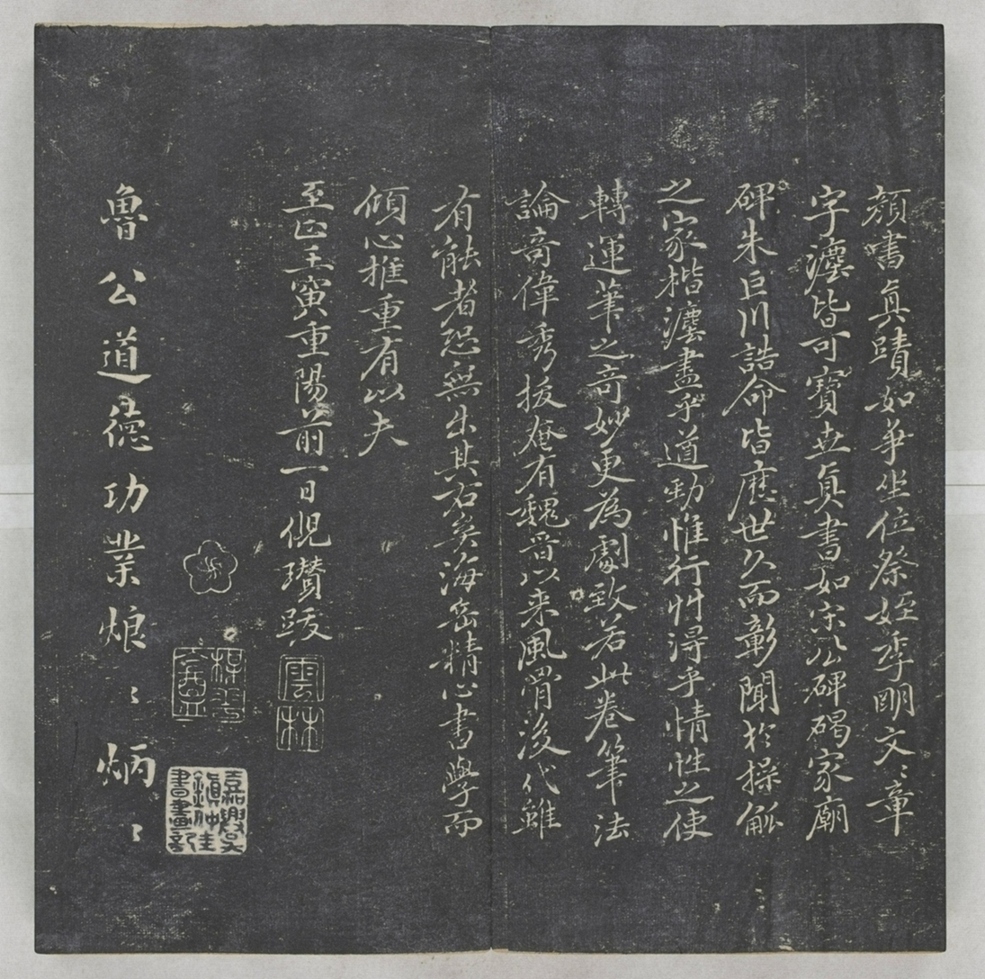 顏書真蹟如爭坐位祭姪季明文〻章
字灋皆可寶也真書如宋公碑碣家廟
碑朱巨川誥命皆應世久而彰聞於操觚
之家楷灋盡乎道勁惟行艸淂乎情性之使
轉運筆之奇妙更為劇致若此卷筆法
論奇偉秀拔奄有魏晋以来風骨後代雖
有能者恐無出其右矣海岳精心書學而
傾心推重有以夫
至正壬寅重陽前一日倪瓚跋
雲林
魯公道德功業烺〻炳〻